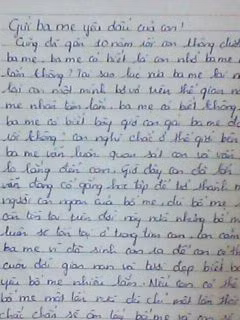 Gửi ba mẹ yêu dấu của con!
Cũng đã gần 10 năm rồi con không được
ba mẹ, ba mẹ có biết là con nhớ ba mẹ
lắm không? Tại sao lúc xưa ba mẹ lại
lại con một mình bơ vơ trên thế gian
mẹ nhẫn tâm lắm. Ba mẹ có biết không,
ba mẹ có biết bây giờ con gái ba mẹ đã
rồi không? con nghĩ chắc ở thế giới bên
ba mẹ vẫn luôn quan sát con và vẫn
lo lắng đến con. Giờ đây con đã lớn
vẫn đang cố gắng học tập để trở thành
người con ngoan của bố mẹ, dù bố mẹ
còn tồn tại trên đời này nữa nhưng bố mẹ
luôn sẽ tồn tại ở trong tim con, con cảm
ba mẹ vì đã sinh con ra để con có thể
cuộc đời gian nan và tươi đẹp biết
yêu bố mẹ nhiều lắm. Nếu con có thể
bố mẹ một lần nữa dù chỉ một lần thôi
chắc chắn sẽ ôm lấy bố mẹ và con sẽ